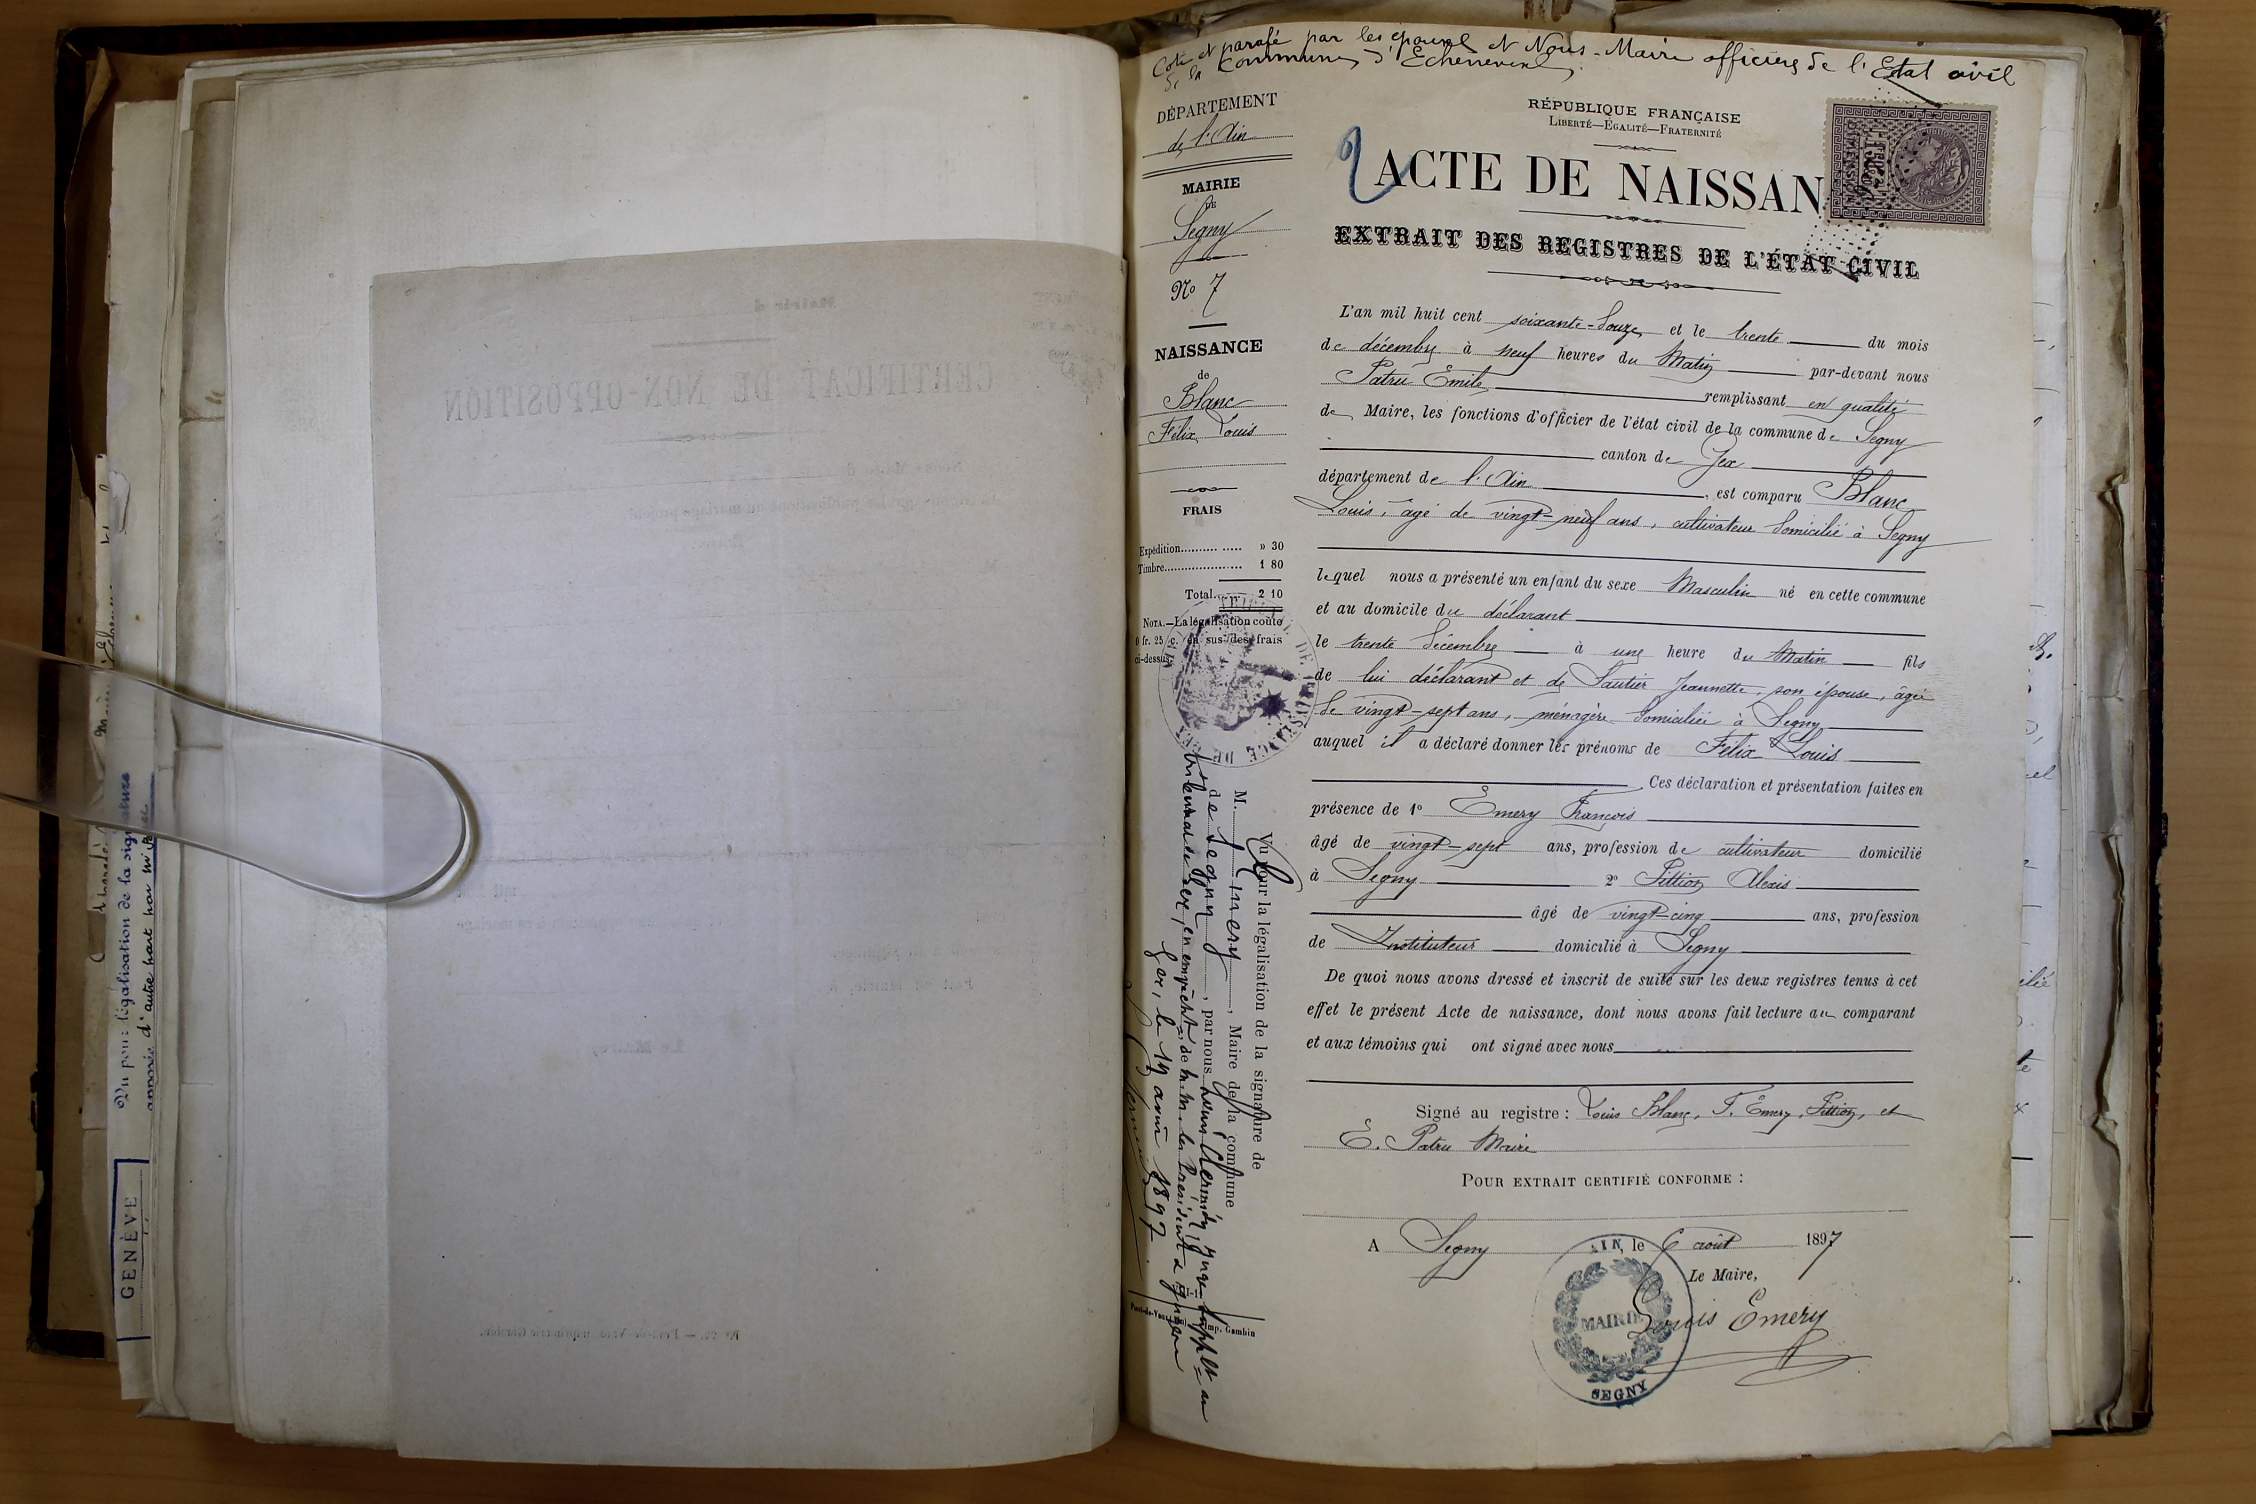 Coté et parafé par les épouse et Nous-Maire officier de l'Etat civil
de la Commune d'Echenevex
DÉPARTEMENT
de l'Ain
MAIRIE
DE
Segny
No 7
NAISSANCE
de
Blanc
Félix Louis
FRAIS
Expédition » 30
Timbre 1 80
Total 2 10
NOTA.—La légalisation coûte
0 fr. 25 c. en sus des frais
ci-dessus.
RÉPUBLIQUE FRANÇAISE
LIBERTÉ—EGALITÉ—FRATERNITÉ
2
ACTE DE NAISSAN
EXTRAIT DES REGISTRES DE L'ÉTAT CIVIL
L'an mil huit cent soixante-douze et le trente du mois
de décembre à neuf heures du Matin par-devant nous
Patru Emile remplissant en qualité
de Maire, les fonctions d'officier de l'état civil de la commune de Segny
canton de Gex
département de l'Ain, est comparu Blanc
Louis, âgé de vingt-neuf ans, cultivateur domicilié à Segny
lequel nous a présenté un enfant du sexe Masculin né en cette commune
et au domicile du déclarant
le trente décembre à une heure du Matin fils
de lui déclarant et de Sautier Jeannette, son épouse, âgée
de vingt-sept ans, ménagère domiciliée à Segny
auquel il a déclaré donner les prénoms de Félix Louis
Ces déclaration et présentation faites en
présence de 1º Emery François
âgé de vingt-sept ans, profession de cultivateur domicilié
à Segny 2º Pittion Alexis
âgé de vingt-cinq ans, profession
de Instituteur domicilié à Segny
De quoi nous avons dressé et inscrit de suite sur les deux registres tenus à cet
effet le présent Acte de naissance, dont nous avons fait lecture au comparant
et aux témoins qui ont signé avec nous
Signé au registre : Louis Blanc, F. Emery, Pittion, et
E. Patru Maire
POUR EXTRAIT CERTIFIÉ CONFORME :
A Segny, le 6 août 1897
Le Maire,
Louis Emery
AIN
MAIRIE
SEGNY
Vu pour la légalisation de la signature de
M. Emery, Maire de la commune
de Segny, par nous Juge suppl au
tribunal de Gex, en empêcht de M.M. les Président & Juges
Gex, le 14 août 1897
Imp. Gambin
Vu pour légalisation de la signature
apposée d'autre part
GENÈVE
CERTIFICAT DE NON-OPPOSITION